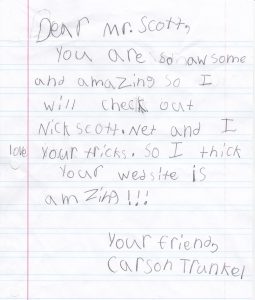 Dear Mr. Scott,
You are so awsome
and amazing so I
will check out
Nickscott.Net and I
love your tricks. So I thick
your website is
amzing!!!
Your friend,
Carson Trunkel